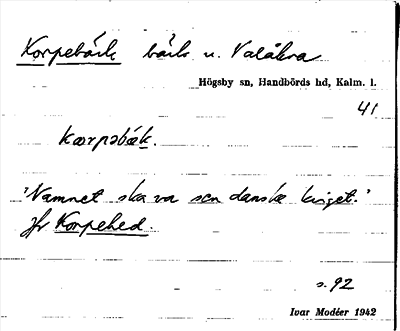 Korpebäck bäck u. Valåkra
Högsby sn, Handbörds hd, Kalm. l.
41
kærpəbäk.
'Namnet ska va sen danske kriget.'
Jfr Korpehed.
s. 92
Ivar Modéer 1942